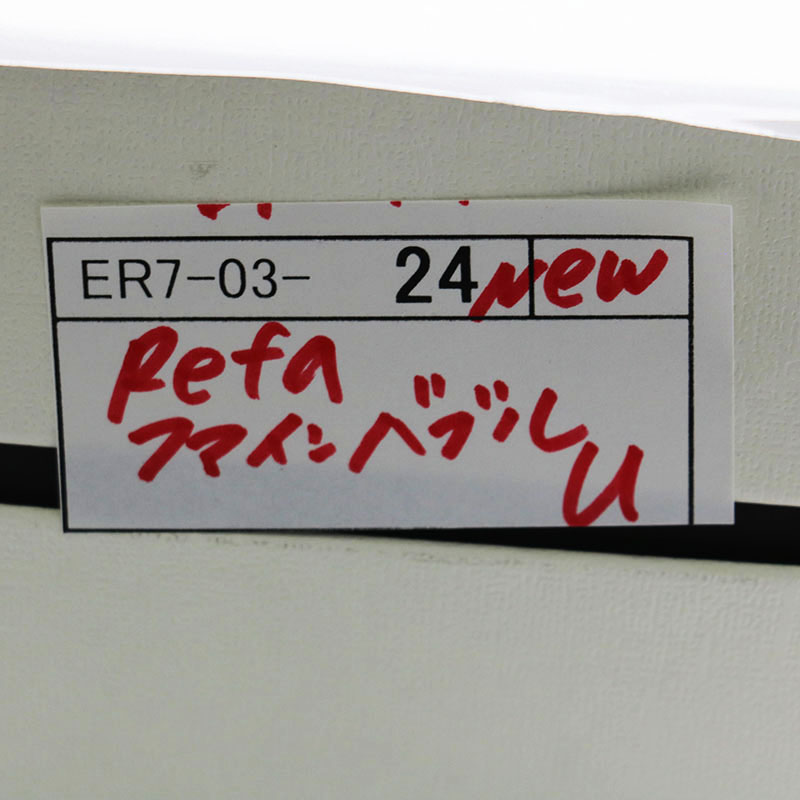 ER7-03- 24 New
Refa
ファインベブル
U